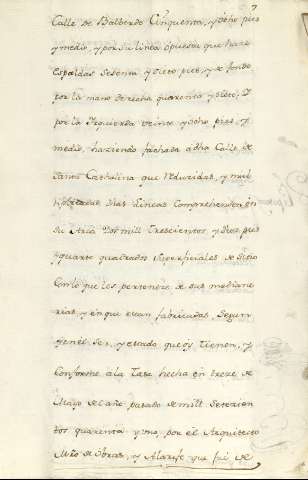 7
Calle de Balberde Cinquenta, y ocho pies
y medio, y por su linea opuesta que haze
espaldas sesenta y siete pies, y de fondo
por la mano derecha quarenta y siete, y
por la Izquierda veinte y ocho pies, y
medio, haziendo fachada a dha Calle de
Santa Cathalina que Reduzidas, y mul
tiplicadas dhas Lineas Comprehenden en
su Area Dos mill Trescientos y Dos pies
y quarto quadrados superficiales de Sitio
Con lo que les perteneze de sus medianerias
y en que estan fabricadas, Segun
y en el ser, y estado que oy tienen, y
Conforme a la Tasa hecha en treze de
Mayo del año pasado de mill Setezien
tos quarenta y uno, por el Arquitecto
Mro de Obras, y Alarife que fue de